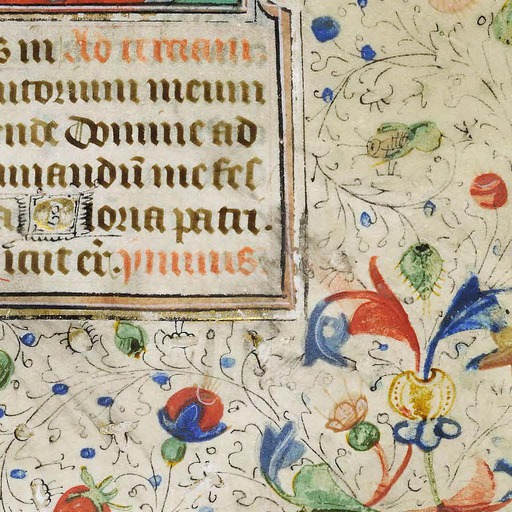 s in Ad terciam.
iutorium meum
ende Domine ad
uuandū me fes
Gloria patri.
icut er̄. ymnus.